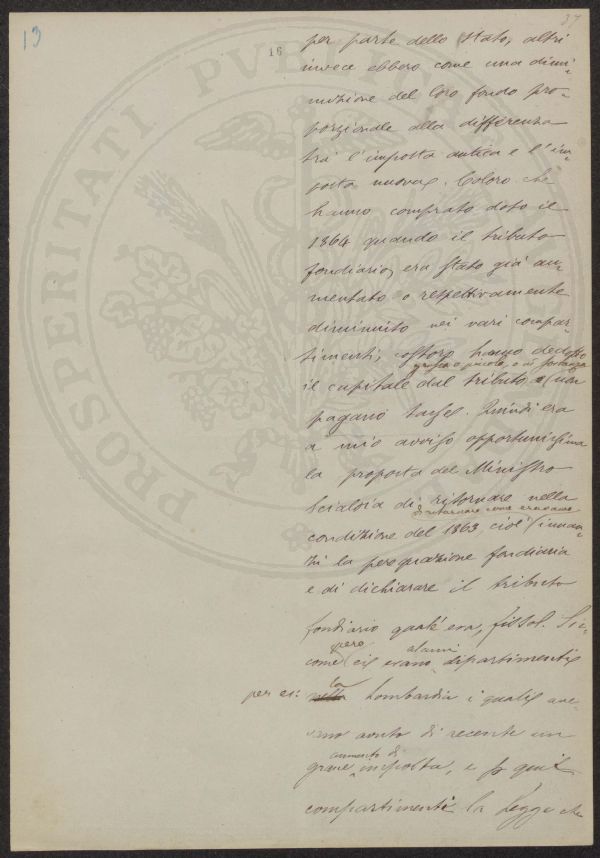 13
16
37
per parte dello Stato, altri
invece ebbero come una dimi-
nuzione del loro fondo pro-
porzionale alla differenza
tra l'imposta antica e l'im-
posta nuova. Coloro che
hanno comprato dopo il
1864 quando il tributo
fondiario, era stato già au-
mentato o respettivamente
diminuito nei vari compar-
timenti, costoro hanno dedotto
grossa o piccola, o in sostanza
il capitale dal tributo e non
pagano tasse. Quindi era
a mio avviso opportunissima
la proposta del Ministro
Scialoia di ritornare nella
di ritornare come eravamo
condizione del 1863, cioè innan-
zi la perequazione fondiaria
e di dichiarare il tributo
fondiario qual'era, fisso. Sic-
pero alcuni
come ci erano dipartimenti
per es: la Lombardia i quali ave-
vano avuto di recente un
aumento di
grave imposta, e p quei
compartimenti la legge che
PROSPERITATI PVBLICAE